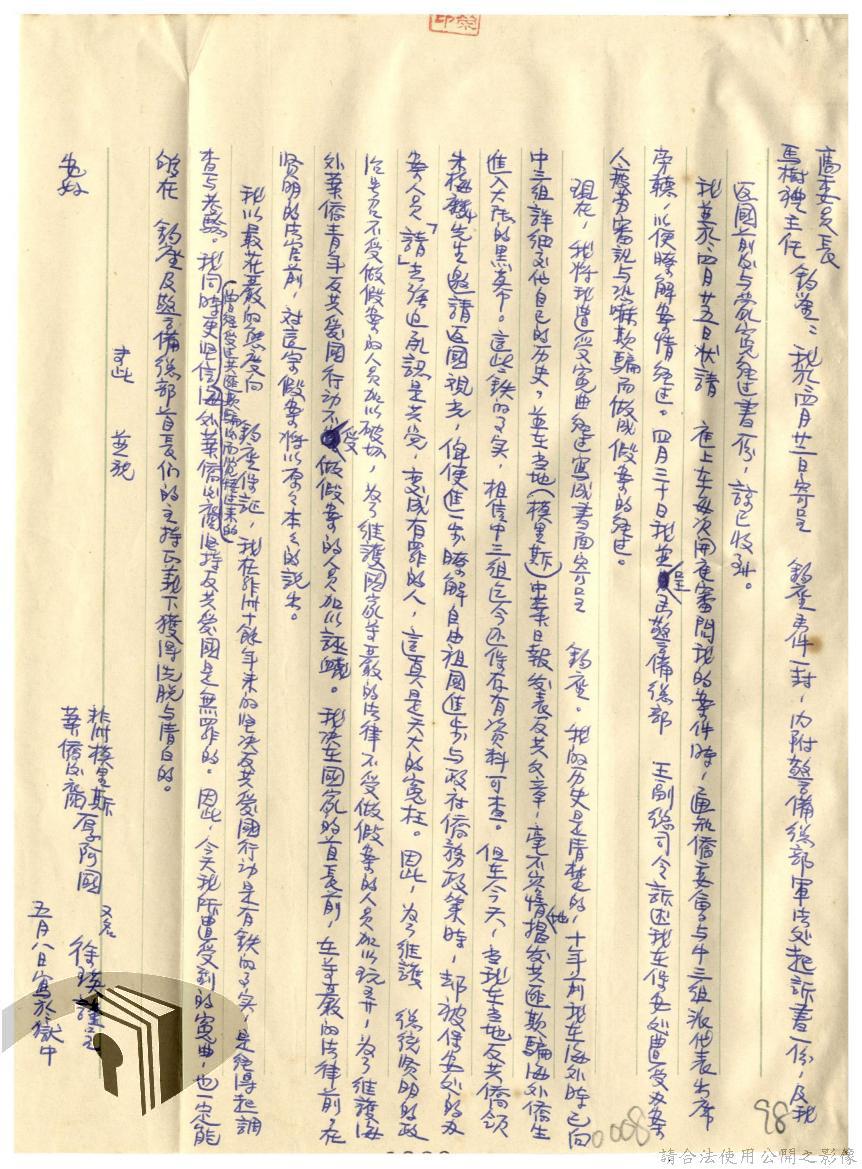 高委員長
馬樹禮主任 鈞鑒:我於四月廿二日寄呈 鈞座書件一封,內附警備總部軍法处起訴書一份,及我
返國前后与蒙冤經过書一份,諒已收到。
我並於四月廿五日狀請 庭上在每次開庭審問我的案件時,通知僑委會与中三組派代表出席
旁聽,以便瞭解案情經过。四月三十日我並呈函警備總部 王副總司令訴述我在保安处遭受办案
人疲劳審訊与恐嚇欺騙而做成假案的經过。
現在,我将我遭受冤曲經过寫成書面寄呈 鈞座。我的历史是清楚的,十年前我在海外時已向
中三組詳細交代自己的历史,並在当地(模里斯)中華日報发表反共文章,毫不容情地揭发共匪欺騙海外僑生
進入大陸的黑幕。這些鉄的事实,相信中三組迄今还保存有資料可查。但在今天,当我在当地反共僑領
朱梅麟先生邀請返國观光,俾便進一步瞭解自由祖國進步与政社僑務政策時,却被保安处的办
案人員「請」去強迫承認是共党,变成有罪的人,這真是天大的冤枉。因此,为了維護 總統賢明的政
治声名不受做假案的人員加以破坏,为了維護國家尊嚴的法律不受做假案的人員加以玩弄,为了維護海
外華僑青年反共愛國行动不受做假案的人員加以誣衊。我决在國家的首長前,在尊嚴的法律前,在
賢明的法官前,对這宗假案将以原原本本的說出。
我以最庄嚴的態度向 鈞座保証,我在非洲十餘年来的坚决反共愛國行动是有鉄的事实,是經得起調
查与考驗。我同時更坚信海外華僑(曾經受过共匪欺騙以而觉醒过来的)
坚持反共愛國是無罪的。因此,今天我所遭受到的冤曲,也一定能
够在 鈞座及警備總部首長们的主持正義下獲得洗脱与清白的。
耑此 並祝
安好
非洲模里斯
華僑
五月八日寫於獄中
98
0008
請合法使用公開之影像